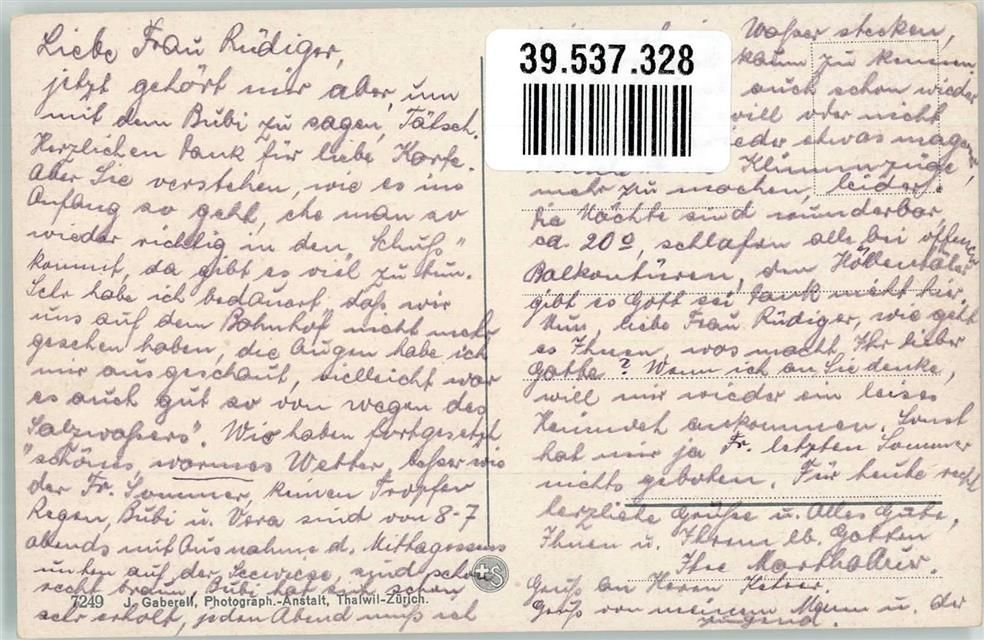 Liebe Frau Rüdiger,
jetzt gehört mir aber, um
mit dem Bubi zu sagen, Tätsch.
Herzlichen Dank für liebe Karte.
Aber Sie verstehen, wie es im
Anfang so geht, ehe man so
wieder richtig in den „Schuß"
kommt, da gibt es viel zu tun.
Sehr habe ich bedauert, daß wir
uns auf dem Bahnhof nicht mehr
gesehen haben, die Augen habe ich
mir ausgeschaut, vielleicht war
es auch gut so von wegen des
"Salzwaßers". Wir haben fortgesetzt
schönes, warmes Wetter, beßer wie
der Fr. Sommer, keinen Tropfen
Regen, Bubi u. Vera sind von 8-7
abends mit Ausnahme d. Mittagessens
unten auf der Seewiese, sind schon
recht braun, Bubi hat sich schon
sehr erholt, jeden Abend muß ich
7249 J. Gaberell, Photograph.-Anstalt, Thalwil-Zürich.
39.537.328
Waßer stecken,
kaum zu kennen
auch schon wieder
will oder nicht
wieder etwas mager
Klimmzüge,
mehr zu machen, leider.
Die Nächte sind wunderbar
ca. 20°, schlafen alle bei offenen
Balkontüren, den Höllentäler
gibt es Gott sei Dank nicht hier.
Nun, liebe Frau Rüdiger, wie geht
es Ihnen, was macht Ihr lieber
Gatte? Wenn ich an Sie denke,
will mir wieder ein leises
Heimweh ankommen. Sonst
hat mir ja Fr. letzten Sommer
nichts geboten. Für heute recht
herzliche Grüße u. Alles Gute,
Ihnen u. Ihrem lb. Gatten
Ihre
Gruß an Herrn
Gruß von meinem Mann u. der
Jugend.